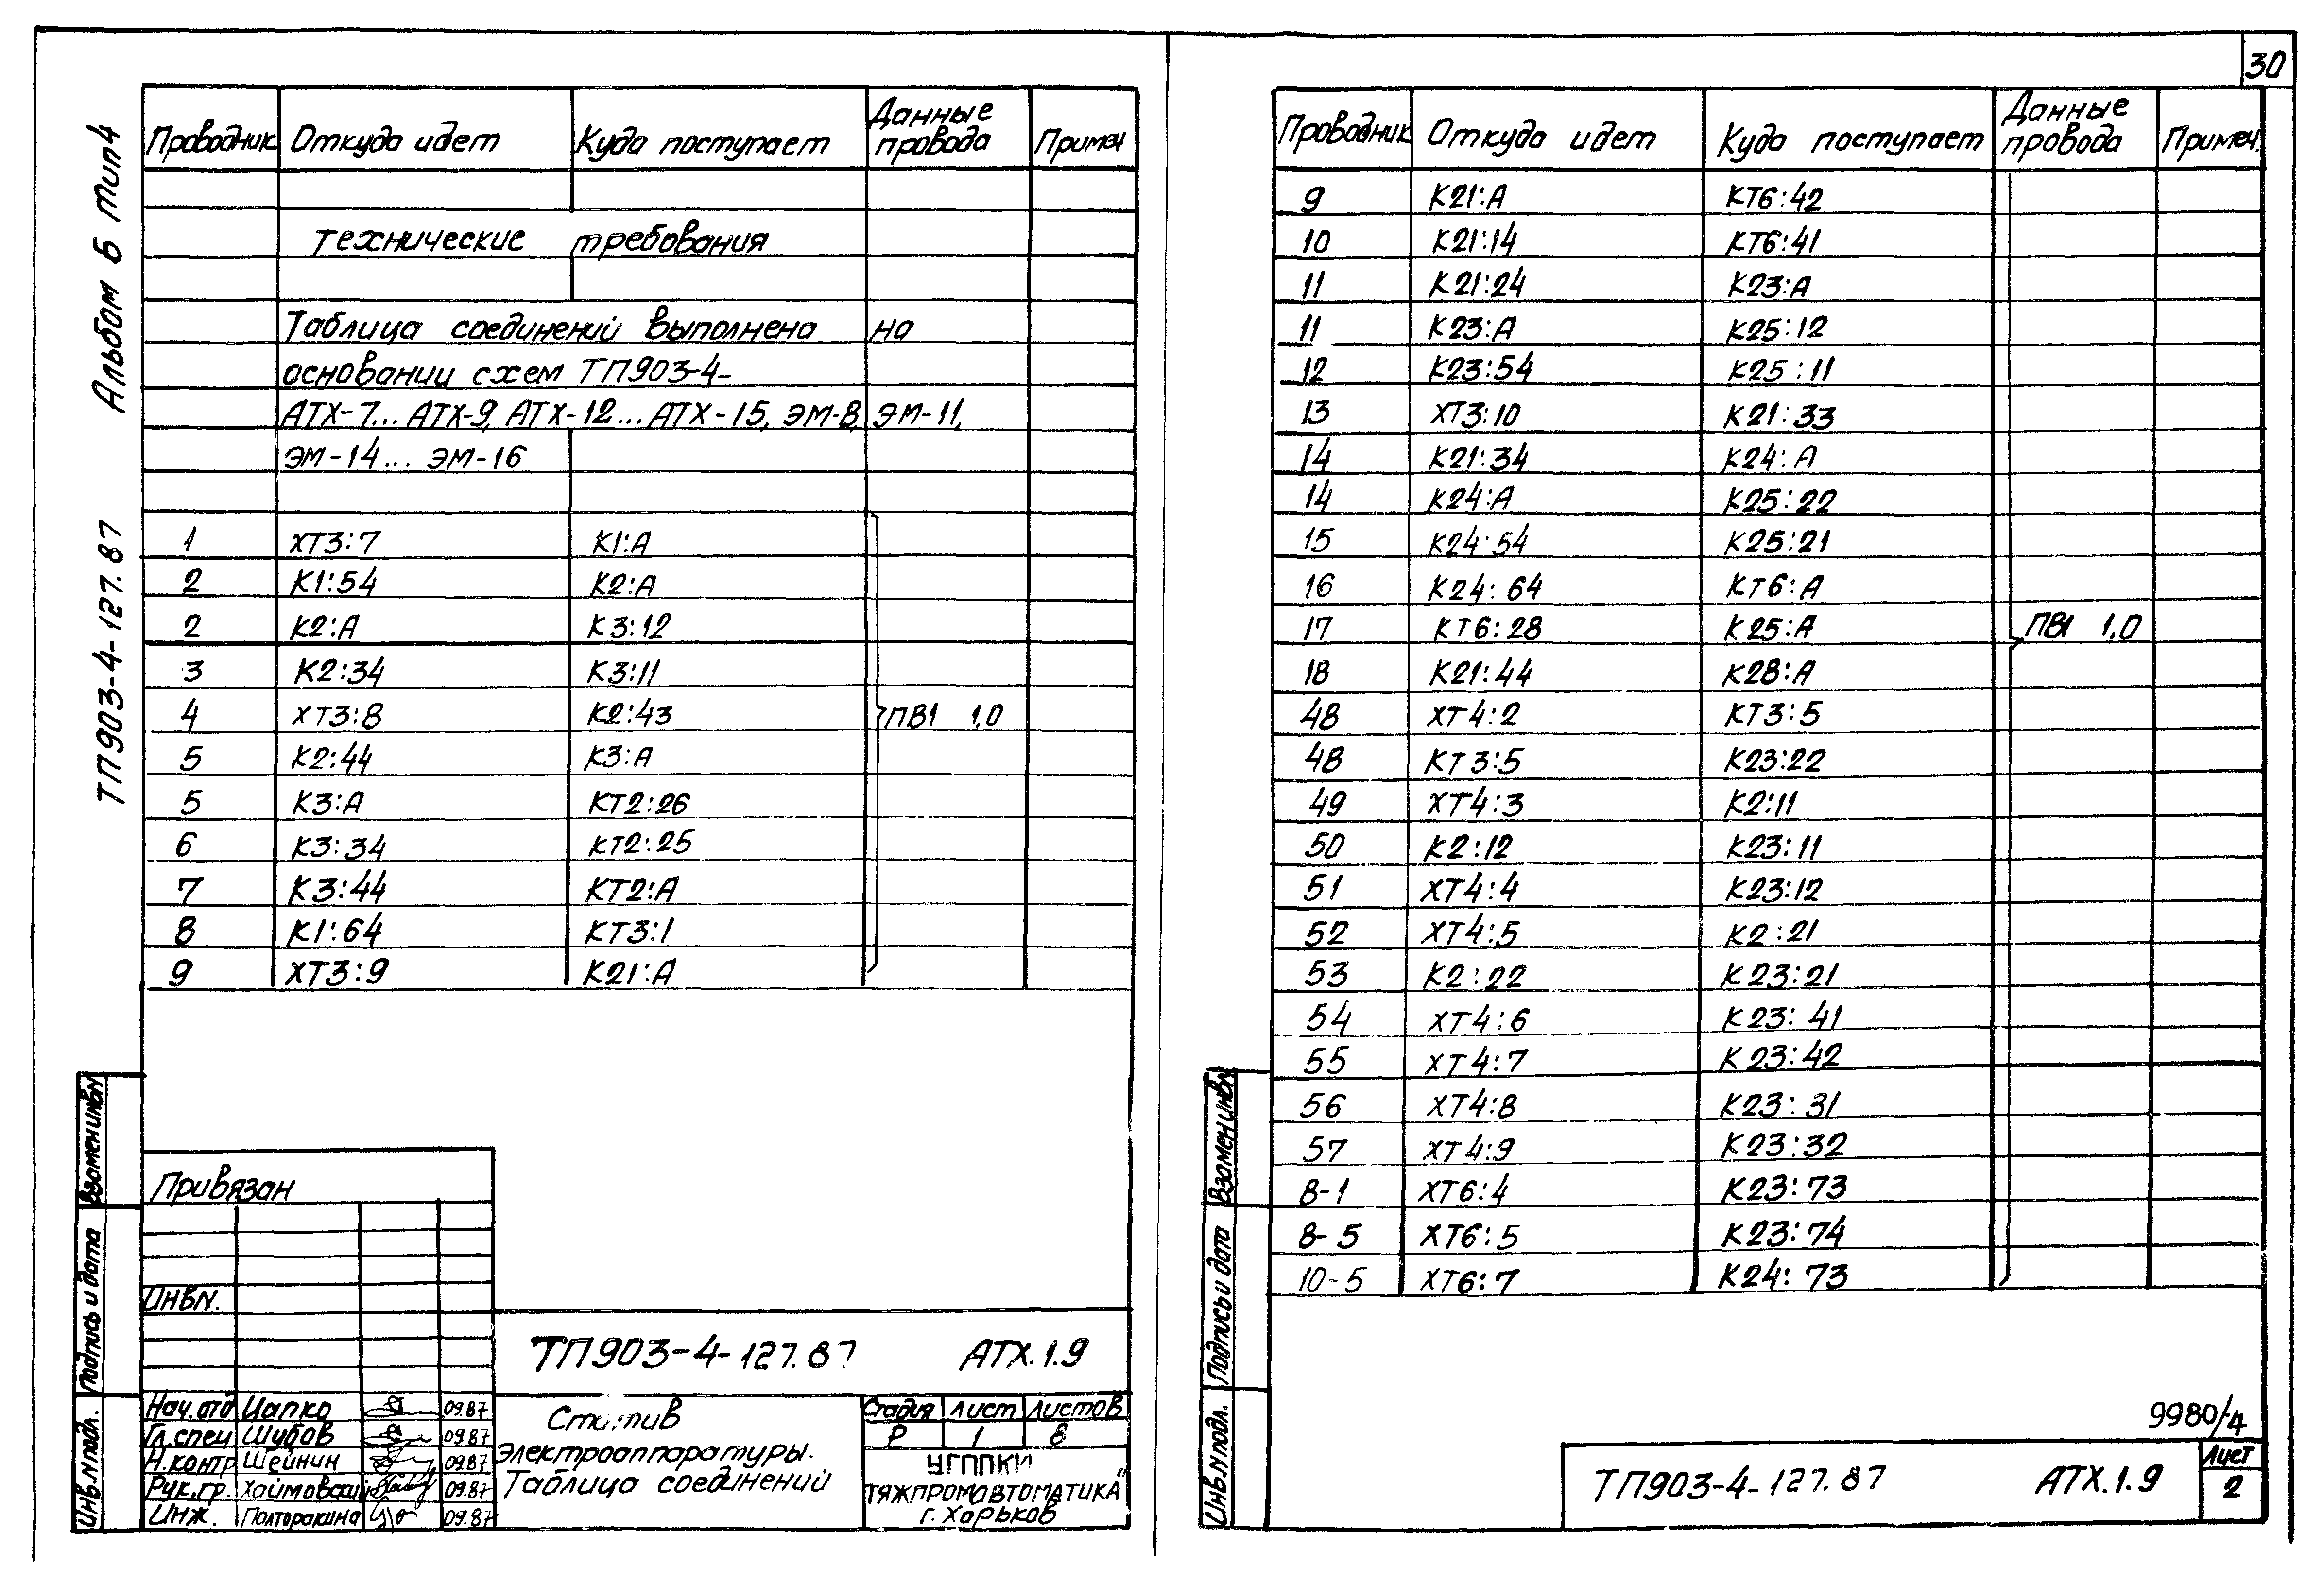 30
Альбом 5 тип 4
ТП903-4-127.87
Проводник Откуда идет Куда поступает Данные провода Примеч
технические требования
Таблица соединений выполнена на
основании схем ТП903-4-
АТХ-7... АТХ-9, АТХ-12... АТХ-15, ЭМ-8, ЭМ-11,
ЭМ-14... ЭМ-16
1 ХТ3:7 К1:А
2 К1:54 К2:А
2 К2:А К3:12
3 К2:34 К3:11
4 ХТ3:8 К2:43 ПВ1 1,0
5 К2:44 К3:А
5 К3:А КТ2:26
6 К3:34 КТ2:25
7 К3:44 КТ2:А
8 К1:64 КТ3:1
9 ХТ3:9 К21:А
Привязан
Инв.N.
ТП903-4-127.87 АТХ.1.9
Нач.отд Цапко 09.87
Гл.спец Шубов 09.87
Н.контр Шейнин 09.87
Рук.гр. Хаймовский 09.87
Инж. Полторакина 09.87
Статив
электроаппаратуры.
Таблица соединений
Стадия Лист Листов
Р 1 8
УГППКИ
ТЯЖПРОМАВТОМАТИКА"
г. Харьков
Взамен инв.N
Подпись и дата
Инв.N подл.
Проводник Откуда идет Куда поступает Данные провода Примеч.
9 К21:А КТ6:42
10 К21:14 КТ6:41
11 К21:24 К23:А
11 К23:А К25:12
12 К23:54 К25:11
13 ХТ3:10 К21:33
14 К21:34 К24:А
14 К24:А К25:22
15 К24:54 К25:21
16 К24:64 КТ6:А
17 КТ6:28 К25:А ПВ1 1,0
18 К21:44 К28:А
48 ХТ4:2 КТ3:5
48 КТ3:5 К23:22
49 ХТ4:3 К2:11
50 К2:12 К23:11
51 ХТ4:4 К23:12
52 ХТ4:5 К2:21
53 К2:22 К23:21
54 ХТ4:6 К23:41
55 ХТ4:7 К23:42
56 ХТ4:8 К23:31
57 ХТ4:9 К23:32
8-1 ХТ6:4 К23:73
8-5 ХТ6:5 К23:74
10-5 ХТ6:7 К24:73
Взамен инв.N
Подпись и дата
Инв.N подл.
9980/4
ТП903-4-127.87 АТХ.1.9
Лист
2